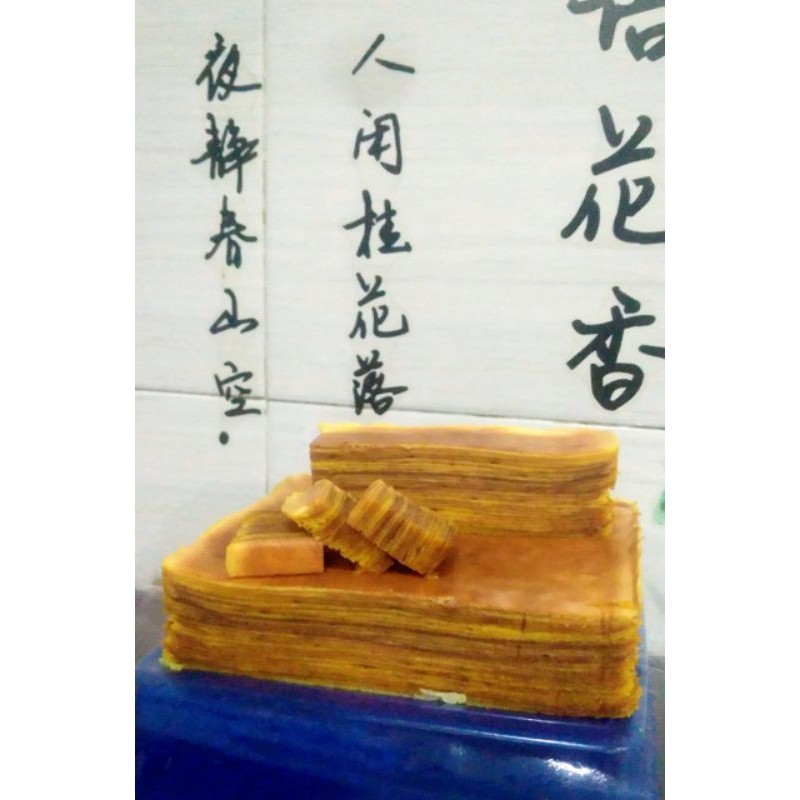 花香
人闲桂花落
夜静春山空.